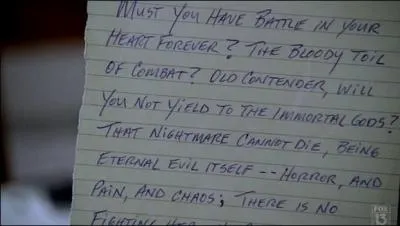 MUST YOU HAVE BATTLE IN YOUR
HEART FOREVER? THE BLOODY TOIL
OF COMBAT? OLD CONTENDER, WILL
YOU NOT YIELD TO THE IMMORTAL GODS?
THAT NIGHTMARE CANNOT DIE, BEING
ETERNAL EVIL ITSELF -- HORROR, AND
PAIN, AND CHAOS; THERE IS NO
FIGHTING HER
FOX
13